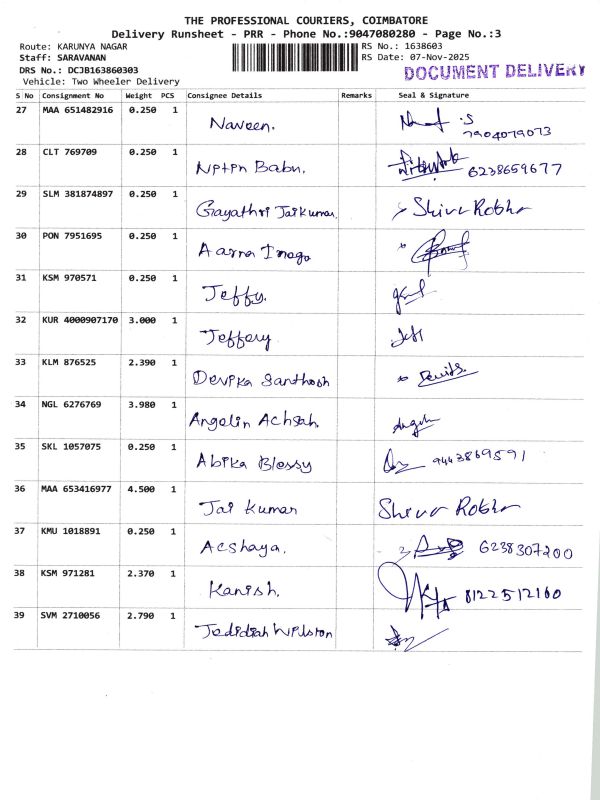 THE PROFESSIONAL COURIERS, COIMBATORE
Delivery Runsheet - PRR - Phone No.:9047080280 - Page No.:3
Route: KARUNYA NAGAR RS No.: 1638603
Staff: SARAVANAN RS Date: 07-Nov-2025
DRS No.: DCJB163860303 DOCUMENT DELIVERY
Vehicle: Two Wheeler Delivery
S No Consignment No Weight PCS Consignee Details Remarks Seal & Signature
27 MAA 651482916 0.250 1 Naveen. S 7904079073
28 CLT 769709 0.250 1 Babu. 6238659677
29 SLM 381874897 0.250 1 Gayathri Jaikumar. Shiva Robha
30 PON 7951695 0.250 1 Aarna Imago
31 KSM 970571 0.250 1 Jeffy.
32 KUR 4000907170 3.000 1 Jeffery Jeff
33 KLM 876525 2.390 1 Devika Santhosh
34 NGL 6276769 3.980 1 Angelin Achsah.
35 SKL 1057075 0.250 1 Abika Blessy 9443869591
36 MAA 653416977 4.500 1 Jai Kumar Shiva Robha
37 KMU 1018891 0.250 1 Acshaya. 6238307200
38 KSM 971281 2.370 1 Kanish. 8122512160
39 SVM 2710056 2.790 1 Jedidiah Wilston